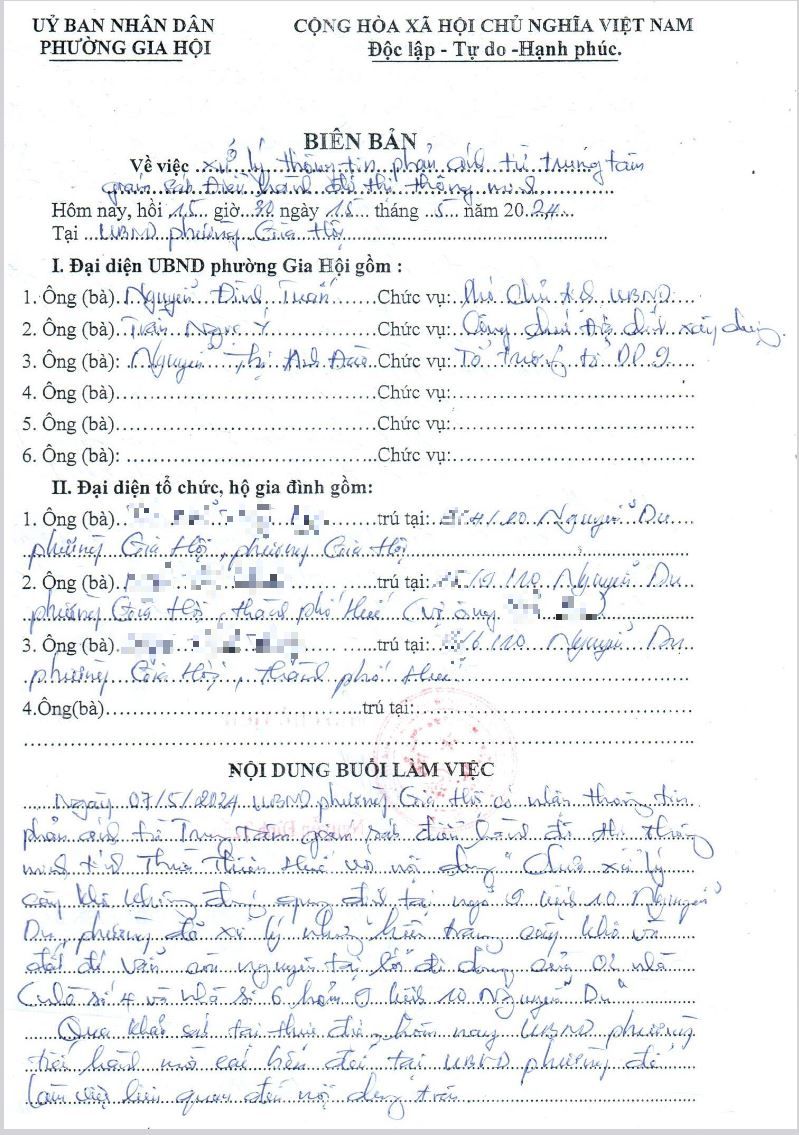 UỶ BAN NHÂN DÂN
PHƯỜNG GIA HỘI
CỘNG HÒA XÃ HỘI CHỦ NGHĨA VIỆT NAM
Độc lập - Tự do -Hạnh phúc.
BIÊN BẢN
Về việc xử lý thông tin phản ánh từ trung tâm
giám sát điều hành đô thị thông minh
Hôm nay, hồi 15 giờ 30 ngày 15 tháng 5 năm 2024
Tại UBND phường Gia Hội
I. Đại diện UBND phường Gia Hội gồm :
1. Ông (bà) Nguyễn Đình Tuấn Chức vụ: Phó Chủ tịch UBND
2. Ông (bà) Trần Ngọc Ý Chức vụ: Công chức địa chính xây dựng
3. Ông (bà): Nguyễn Thị Anh Đào Chức vụ: Tổ trưởng tổ DP 9
4. Ông (bà) Chức vụ:
5. Ông (bà) Chức vụ:
6. Ông (bà): Chức vụ:
II. Đại diện tổ chức, hộ gia đình gồm:
1. Ông (bà) trú tại: Nguyễn Du
phường Gia Hội, phường Gia Hội
2. Ông (bà) trú tại: Nguyễn Du
phường Gia Hội, thành phố Huế (vợ ông )
3. Ông (bà) trú tại: Nguyễn Du
phường Gia Hội, thành phố Huế
4.Ông(bà) trú tại:
NỘI DUNG BUỔI LÀM VIỆC
Ngày 07/5/2024 UBND phường Gia Hội có nhận thông tin
phản ánh từ Trung tâm giám sát điều hành đô thị thông
minh tỉnh Thừa Thiên Huế với nội dung "Chưa xử lý
cây khô không đúng quy định tại ngõ 9 kiệt 10 Nguyễn
Du, phường đã xử lý nhưng hiện trạng cây khô và
đất đá vẫn còn nguyên tại lối đi dông của 02 nhà
(nhà số 4 và nhà số 6 hẻm 9 kiệt 10 Nguyễn Du"
Qua khảo sát tại thực địa, hôm nay UBND phường
tiến hành mời các bên đến tại UBND phường để
làm việc liên quan đến nội dung trên